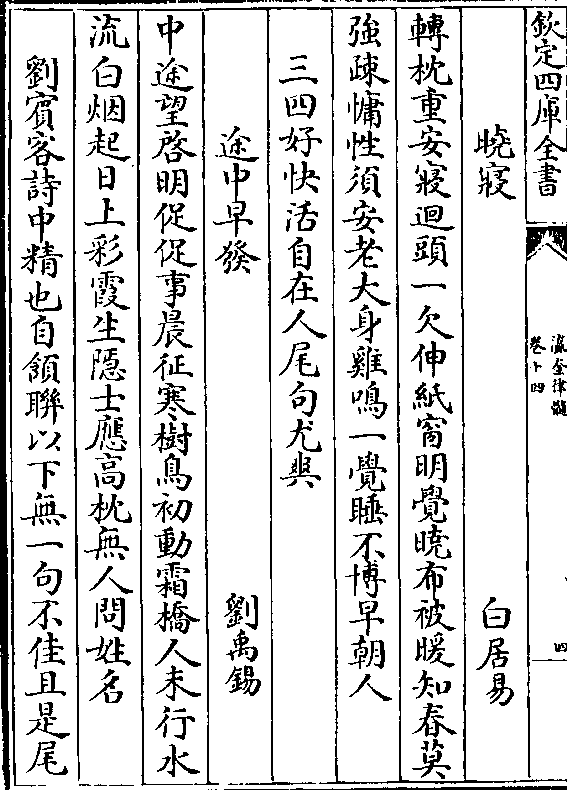 欽定四庫全書
瀛奎律髓
卷十四
四
曉寢
白居易
轉枕重安寢迴頭一欠伸紙窗明覺曉布被暖知春莫
強疎慵性須安老大身雞鳴一覺睡不博早朝人
三四好快活自在人尾句尤典
途中早發
劉禹錫
中途望啓明促促事晨征寒樹鳥初動霜橋人未行水
流白烟起日上彩霞生隱士應高枕無人問姓名
劉賓客詩中精也自頷聯以下無一句不佳且是尾